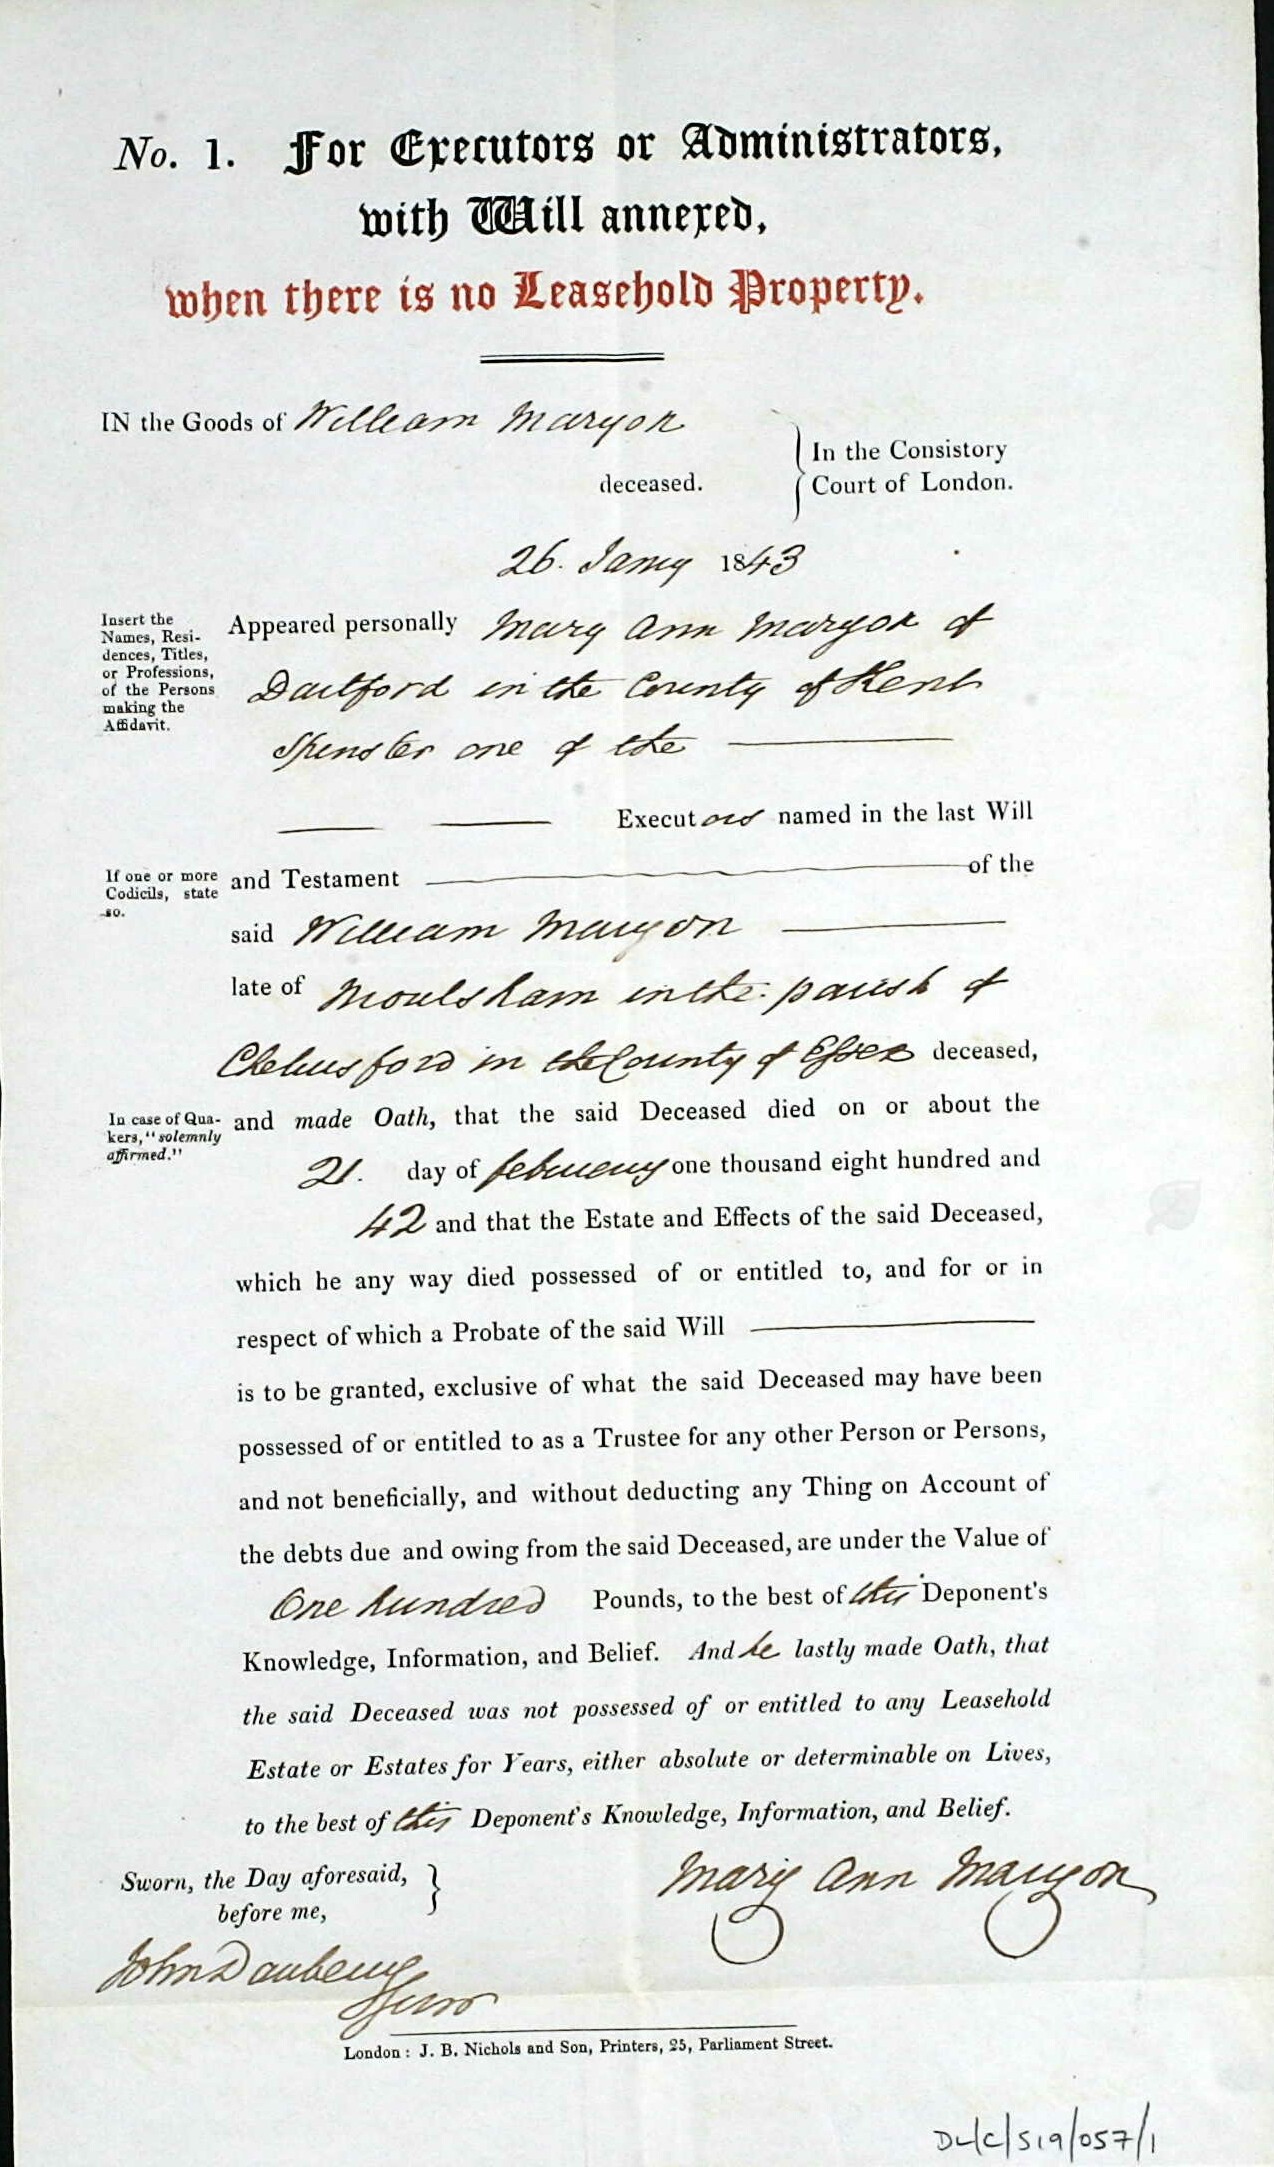 No. 1. For Executors or Administrators,
with Will annexed,
when there is no Leasehold Property.
IN the Goods of William Maryon
deceased.
In the Consistory
Court of London.
26. Jany 1843
Insert the
Names, Resi-
dences, Titles,
or Professions,
of the Persons
making the
Affidavit.
Appeared personally Mary Ann Maryon of
Dartford in the County of Kent
Spinster one of the
Executors named in the last Will
If one or more
Codicils, state
so.
and Testament of the
said William Maryon
late of Moulsham in the parish of
Chelmsford in the County of Essex deceased,
In case of Qua-
kers, "solemnly
affirmed."
and made Oath, that the said Deceased died on or about the
21. day of February one thousand eight hundred and
42 and that the Estate and Effects of the said Deceased,
which he any way died possessed of or entitled to, and for or in
respect of which a Probate of the said Will
is to be granted, exclusive of what the said Deceased may have been
possessed of or entitled to as a Trustee for any other Person or Persons,
and not beneficially, and without deducting any Thing on Account of
the debts due and owing from the said Deceased, are under the Value of
One hundred Pounds, to the best of this Deponent's
Knowledge, Information, and Belief. And he lastly made Oath, that
the said Deceased was not possessed of or entitled to any Leasehold
Estate or Estates for Years, either absolute or determinable on Lives,
to the best of this Deponent's Knowledge, Information, and Belief.
Sworn, the Day aforesaid,
before me,
Mary Ann Maryon
John Daubeny
Surr
London: J. B. Nichols and Son, Printers, 25, Parliament Street.
DL/C/519/057/1